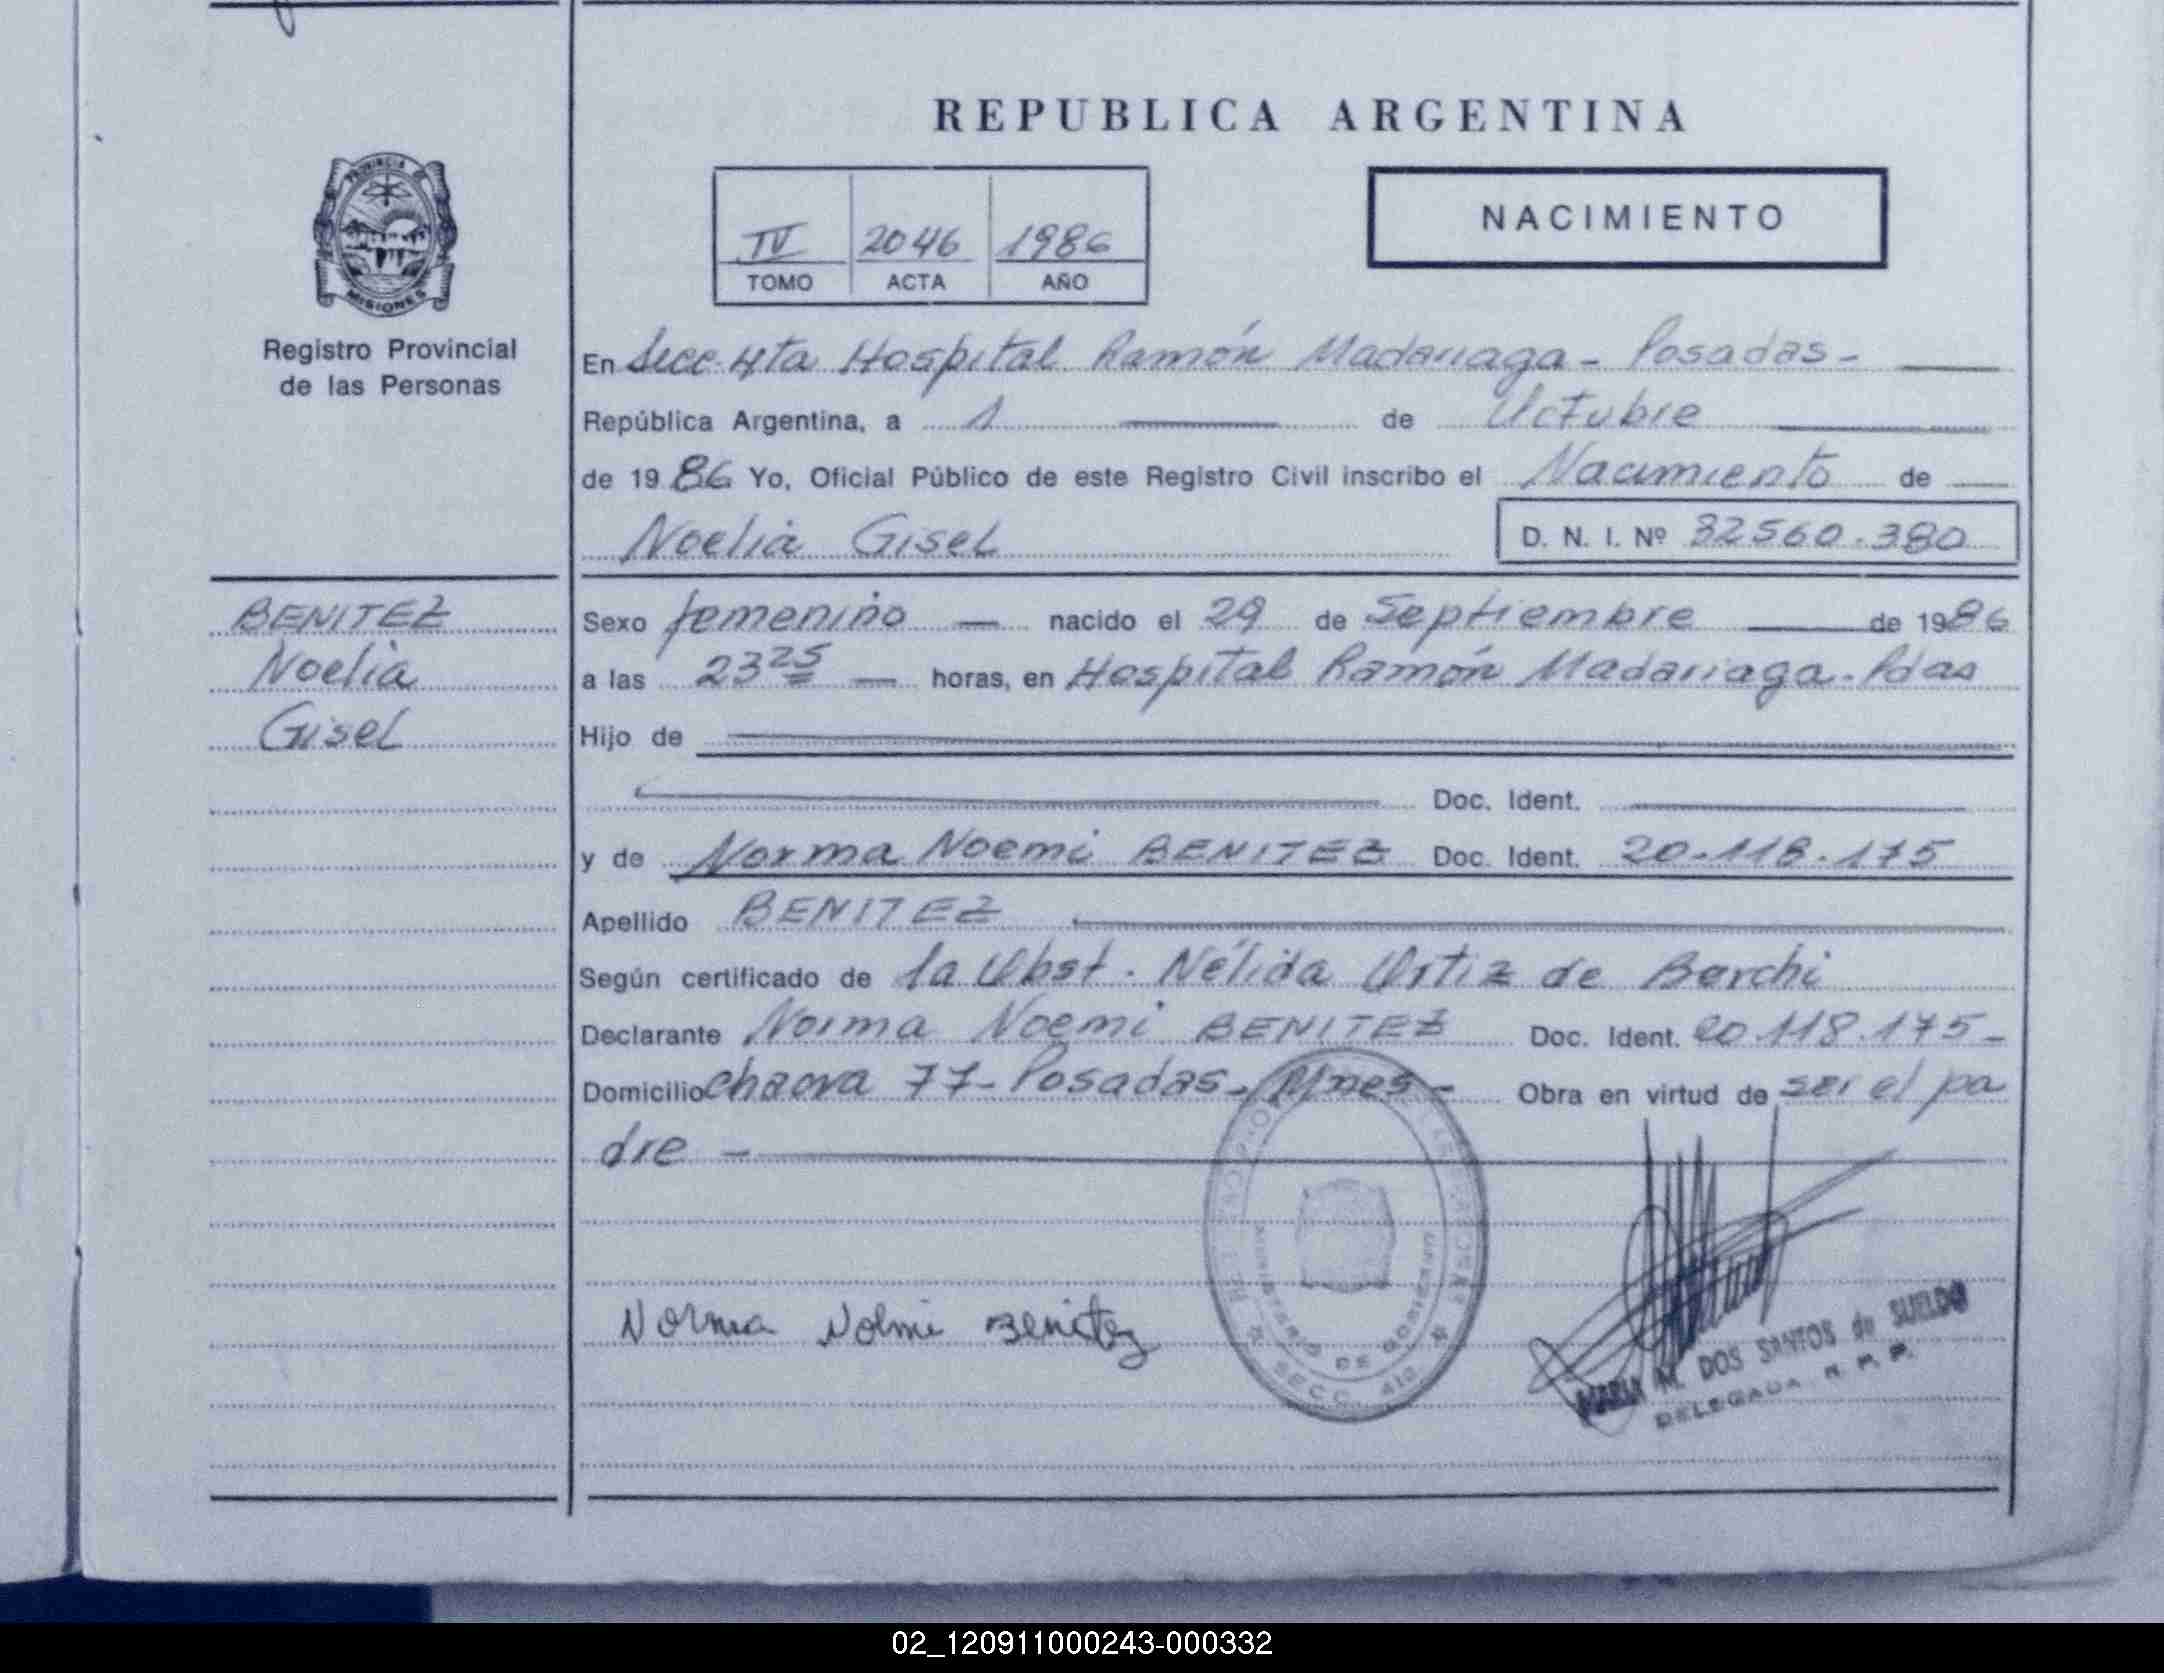 REPUBLICA ARGENTINA
PROVINCIA DE MISIONES
Registro Provincial
de las Personas
IV 2046 1986
TOMO ACTA AÑO
NACIMIENTO
En Secc. 4ta Hospital Ramón Madariaga - Posadas -
República Argentina, a 1 de Octubre
de 1986 Yo, Oficial Público de este Registro Civil inscribo el Nacimiento de
Noelia Gisel D. N. I. Nº 32560.380
BENITEZ
Noelia
Gisel
Sexo femenino nacido el 29 de Septiembre de 1986
a las 23 25 horas, en Hospital Ramón Madariaga - Pdas
Hijo de
Doc. Ident.
y de Norma Noemi BENITEZ Doc. Ident. 20.118.175
Apellido BENITEZ
Según certificado de la Obst. Nélida Ortiz de Barchi
Declarante Norma Noemi BENITEZ Doc. Ident. 20.118.175 -
Domicilio chacra 77 - Posadas - Mnes - Obra en virtud de ser el pa
dre -
Norma Nolmi Benitez
MINISTERIO DE GOBIERNO
SECC. 4ta
MARIA M. DOS SANTOS de SUELDO
DELEGADA R. P. P.
02_120911000243-000332